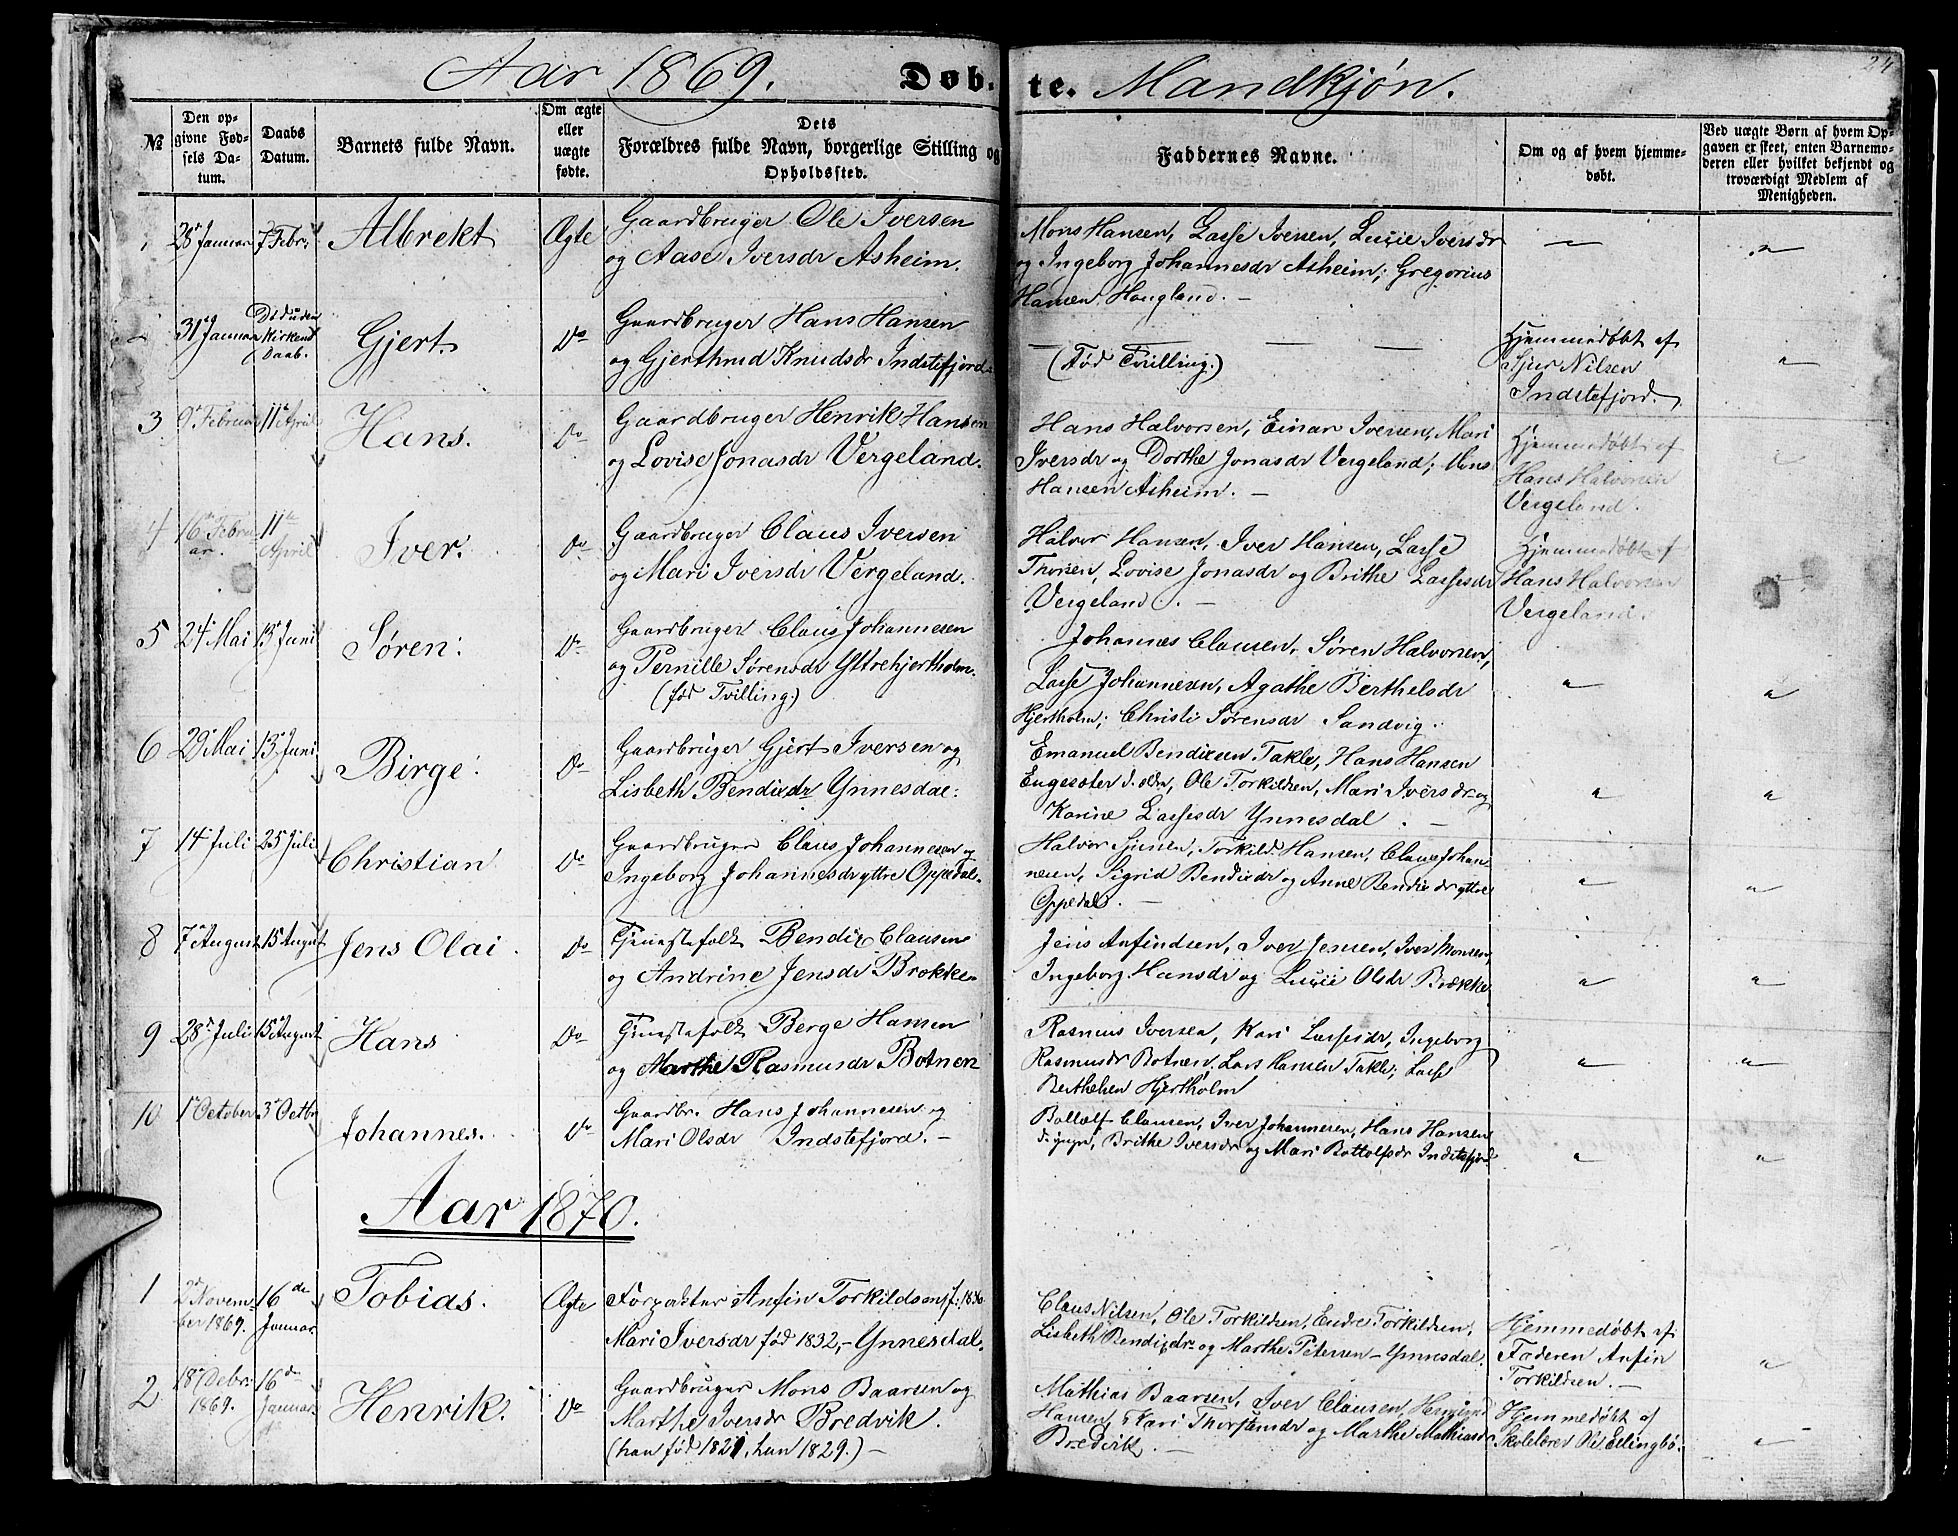 Aar 1869. Døb-te. Mandkjøn.
24
№
Den op-
givne Fød-
sels Da-
tum.
Daabs
Datum.
Barnets fulde Navn.
Om ægte
eller
uægte
fødte.
Dets
Forældres fulde Navn, borgerlige Stilling og
Opholdssted.
Faddernes Navne.
Om og af hvem hjemme-
døbt.
Ved uægte Børn af hvem Op-
gaven er skeet, enten Barnemo-
deren eller hvilket bekjendt og
troværdigt Medlem af
Menigheden.
28 Januar
7 Febr.
Albrekt
Ægte
Gaardbruger Ole Iversen
og Aase Iversdr Asheim.
Mons Hansen, Lasse Iversen, Lucie Iversdr
og Ingeborg Johannesdr Asheim; Gregorius
Hansen Haugland. -
31 Januar
Død uden
Kirkens
Daab.
Gjert.
Do
Gaardbruger Hans Hansen
og Gjerthrud Knudsdr Indstefjord.
(Fød Tvilling.)
Hjemmedøbt af
Sjur Nilsen
Indstefjord.
3
9 Februar
11 April
Hans.
Do
Gaardbruger Henrik Hansen
og Lovise Jonasdr Vergeland.
Hans Halvorsen, Einar Iversen, Mari
Iversdr og Dorthe Jonasdr Vergeland; Mons
Hansen Asheim. -
Hjemmedøbt af
Hans Halvorsen
Vergeland.
4
16de Febru-
ar.
11te
April
Iver.
Do
Gaardbruger Claus Iversen
og Mari Iversdr Vergeland.
Halvor Hansen, Iver Hansen, Lasse
Thorsen, Lovise Jonasdr og Brithe Lassesdr
Vergeland. -
Hjemmedøbt af
Hans Halvorsen
Vergeland.
5
24 Mai
13 Juni
Søren.
Do
Gaardbruger Claus Johannesen
og Pernille Sørensdr Yttrehjertholm.
(fød Tvilling.)
Johannes Clausen, Søren Halvorsen,
Lasse Johannesen, Agathe Berthelsdr
Hjertholm; Christi Sørensdr Sandvig.
6
29 Mai
13 Juni
Birge.
Do
Gaardbruger Gjert Iversen og
Lisbeth Bendixdr Ynnesdal.
Emanuel Bendixen Takle, Hans Hansen
Engesæter d. eldr, Ole Torkildsen, Mari Iversdr og
Karine Lassesdr Ynnesdal. -
7
14 Juli
25 Juli
Christian
Do
Gaardbruger Claus Johannesen og
Ingeborg Johannesdr yttre Oppedal.
Halvor Sjursen, Torkild Hansen, Claus Johan-
nesen, Sigrid Bendixdr og Anne Bendixdr yttre
Oppedal. -
8
7 August
15 August
Jens Olai.
Do
Tjenestefolk Bendix Clausen
og Andrine Jensdr Brekke
Jens Anfindsen, Iver Jensen, Iver Monsen,
Ingeborg Hansdr og Lucie Olsdr Brække
9
28 Juli
15 August
Hans
Do
Tjenestefolk Berge Hansen
og Marthe Rasmusdr Botnen
Rasmus Iversen, Kari Lassesdr, Ingeborg
Rasmusdr Botnen, Lars Hansen Takle; Lasse
Berthelsen Hjertholm
10
1 October
3 Octbr
Johannes.
Do
Gaardbr. Hans Johannesen og
Mari Olsdr Indstefjord. -
Bottolf Clausen, Iver Johannesen, Hans Hansen
d. yngr, Brithe Iversdr og Mari Bottolfsdr Indstefjord
Aar 1870.
1
2 Novem-
ber 1869.
16de
Januar
Tobias.
Ægte
Forpakter Anfin Torkildsen f: 1836
Mari Iversdr fød 1832,- Ynnesdal.
Claus Nilsen, Ole Torkildsen, Endre Torkildsen,
Lisbeth Bendixdr og Marthe Petersen - Ynnesdal.
Hjemmedøbt af
Faderen Anfin
Torkildsen. -
2
18 Debr.
1869.
16de
Januar
Henrik.
Do
Gaardbruger Mons Baarsen og
Marthe Iversdr Bredvik.
(han fød 1821, hun 1829.) -
Mathias Baarsen, Iver Clausen, Hermund
Hansen, Kari Thorstensdr og Marthe Mathiasdr
Bredvik. -
Hjemmedøbt af
Skolelærer Ellingbø.